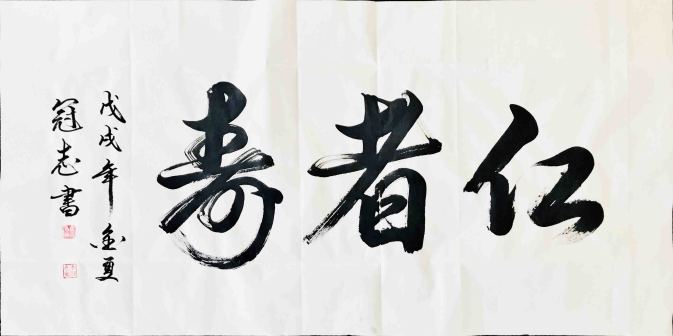 仁者寿
戊戌年金夏
冠志書